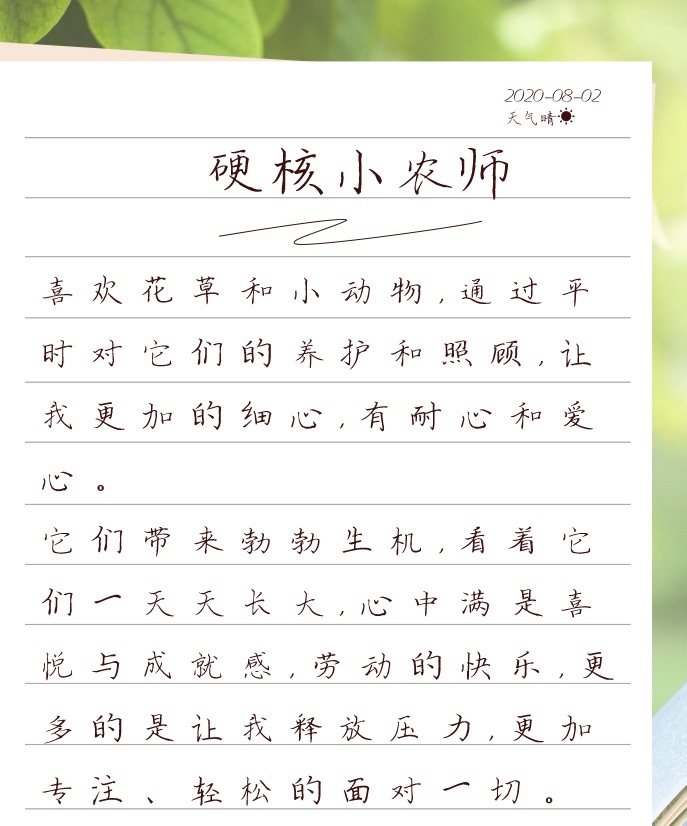 2020-08-02
天气晴
硬核小农师
喜欢花草和小动物,通过平
时对它们的养护和照顾,让
我更加的细心,有耐心和爱
心。
它们带来勃勃生机,看着它
们一天天长大,心中满是喜
悦与成就感,劳动的快乐,更
多的是让我释放压力,更加
专注、轻松的面对一切。